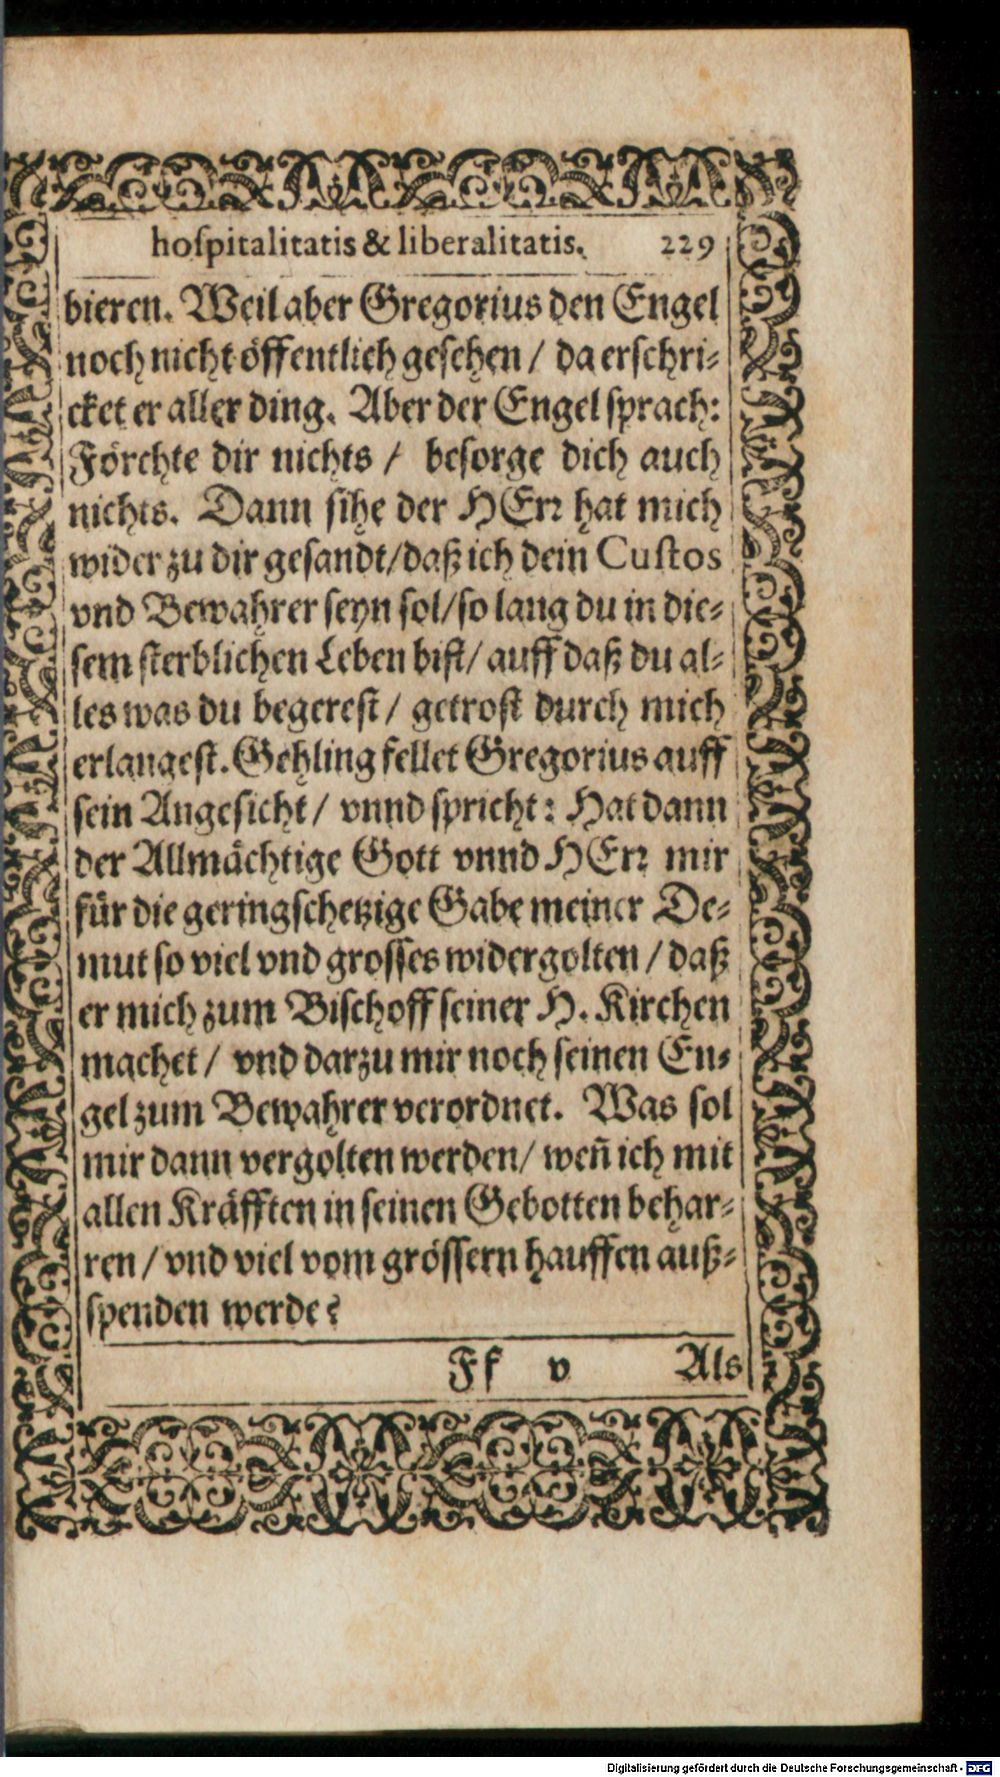 hoſpitalitatis & liberalitatis. 229
bieren. Weil aber Gregorius den Engel
noch nicht öffentlich geſehen / da erſchri⸗
cket er aller ding. Aber der Engel ſprach:
Förchte dir nichts / beſorge dich auch
nichts. Dann ſihe der HErꝛ hat mich
wider zu dir geſandt/daß ich dein Cuſtos
vnd Bewahrer ſeyn ſol/ſo lang du in die⸗
ſem ſterblichen Leben biſt/ auff daß du al⸗
les was du begereſt / getroſt durch mich
erlangeſt. Gehling fellet Gregorius auff
ſein Angeſicht / vnnd ſpricht: Hat dann
der Allmächtige Gott vnnd HErꝛ mir
für die geringſchetzige Gabe meiner De⸗
mut ſo viel vnd groſſes widergolten / daß
er mich zum Biſchoff ſeiner H. Kirchen
machet / vnd darzu mir noch ſeinen En⸗
gel zum Bewahrer verordnet. Was ſol
mir dann vergolten werden/ weñ ich mit
allen Kräfften in ſeinen Gebotten behar⸗
ren / vnd viel vom gröſſern hauffen auß⸗
ſpenden werde?
Ff v Als
Digitalisierung gefördert durch die Deutsche Forschungsgemeinschaft - DFG